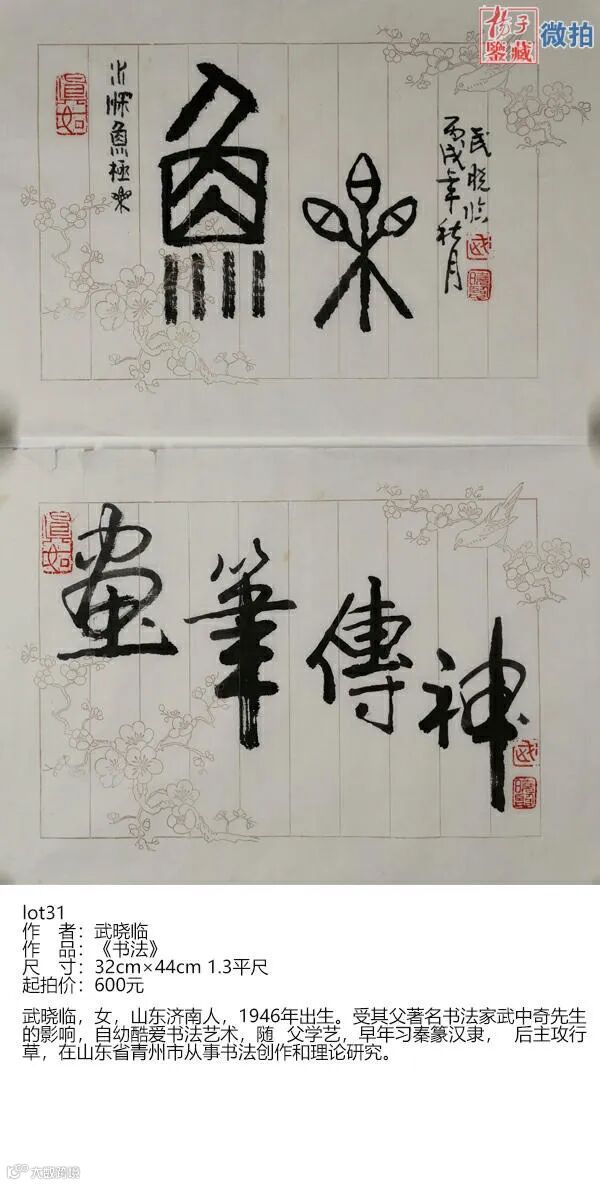 杨子
鑒藏
微拍
眞如
水深魚極樂
魚樂
丙戌年秋月
武晓临
眞如
畫筆傳神
lot31
作 者：武晓临
作 品：《书法》
尺 寸：32cm×44cm 1.3平尺
起拍价：600元
武晓临，女，山东济南人，1946年出生。受其父著名书法家武中奇先生
的影响，自幼酷爱书法艺术，随 父学艺，早年习秦篆汉隶， 后主攻行
草，在山东省青州市从事书法创作和理论研究。
大威跨境